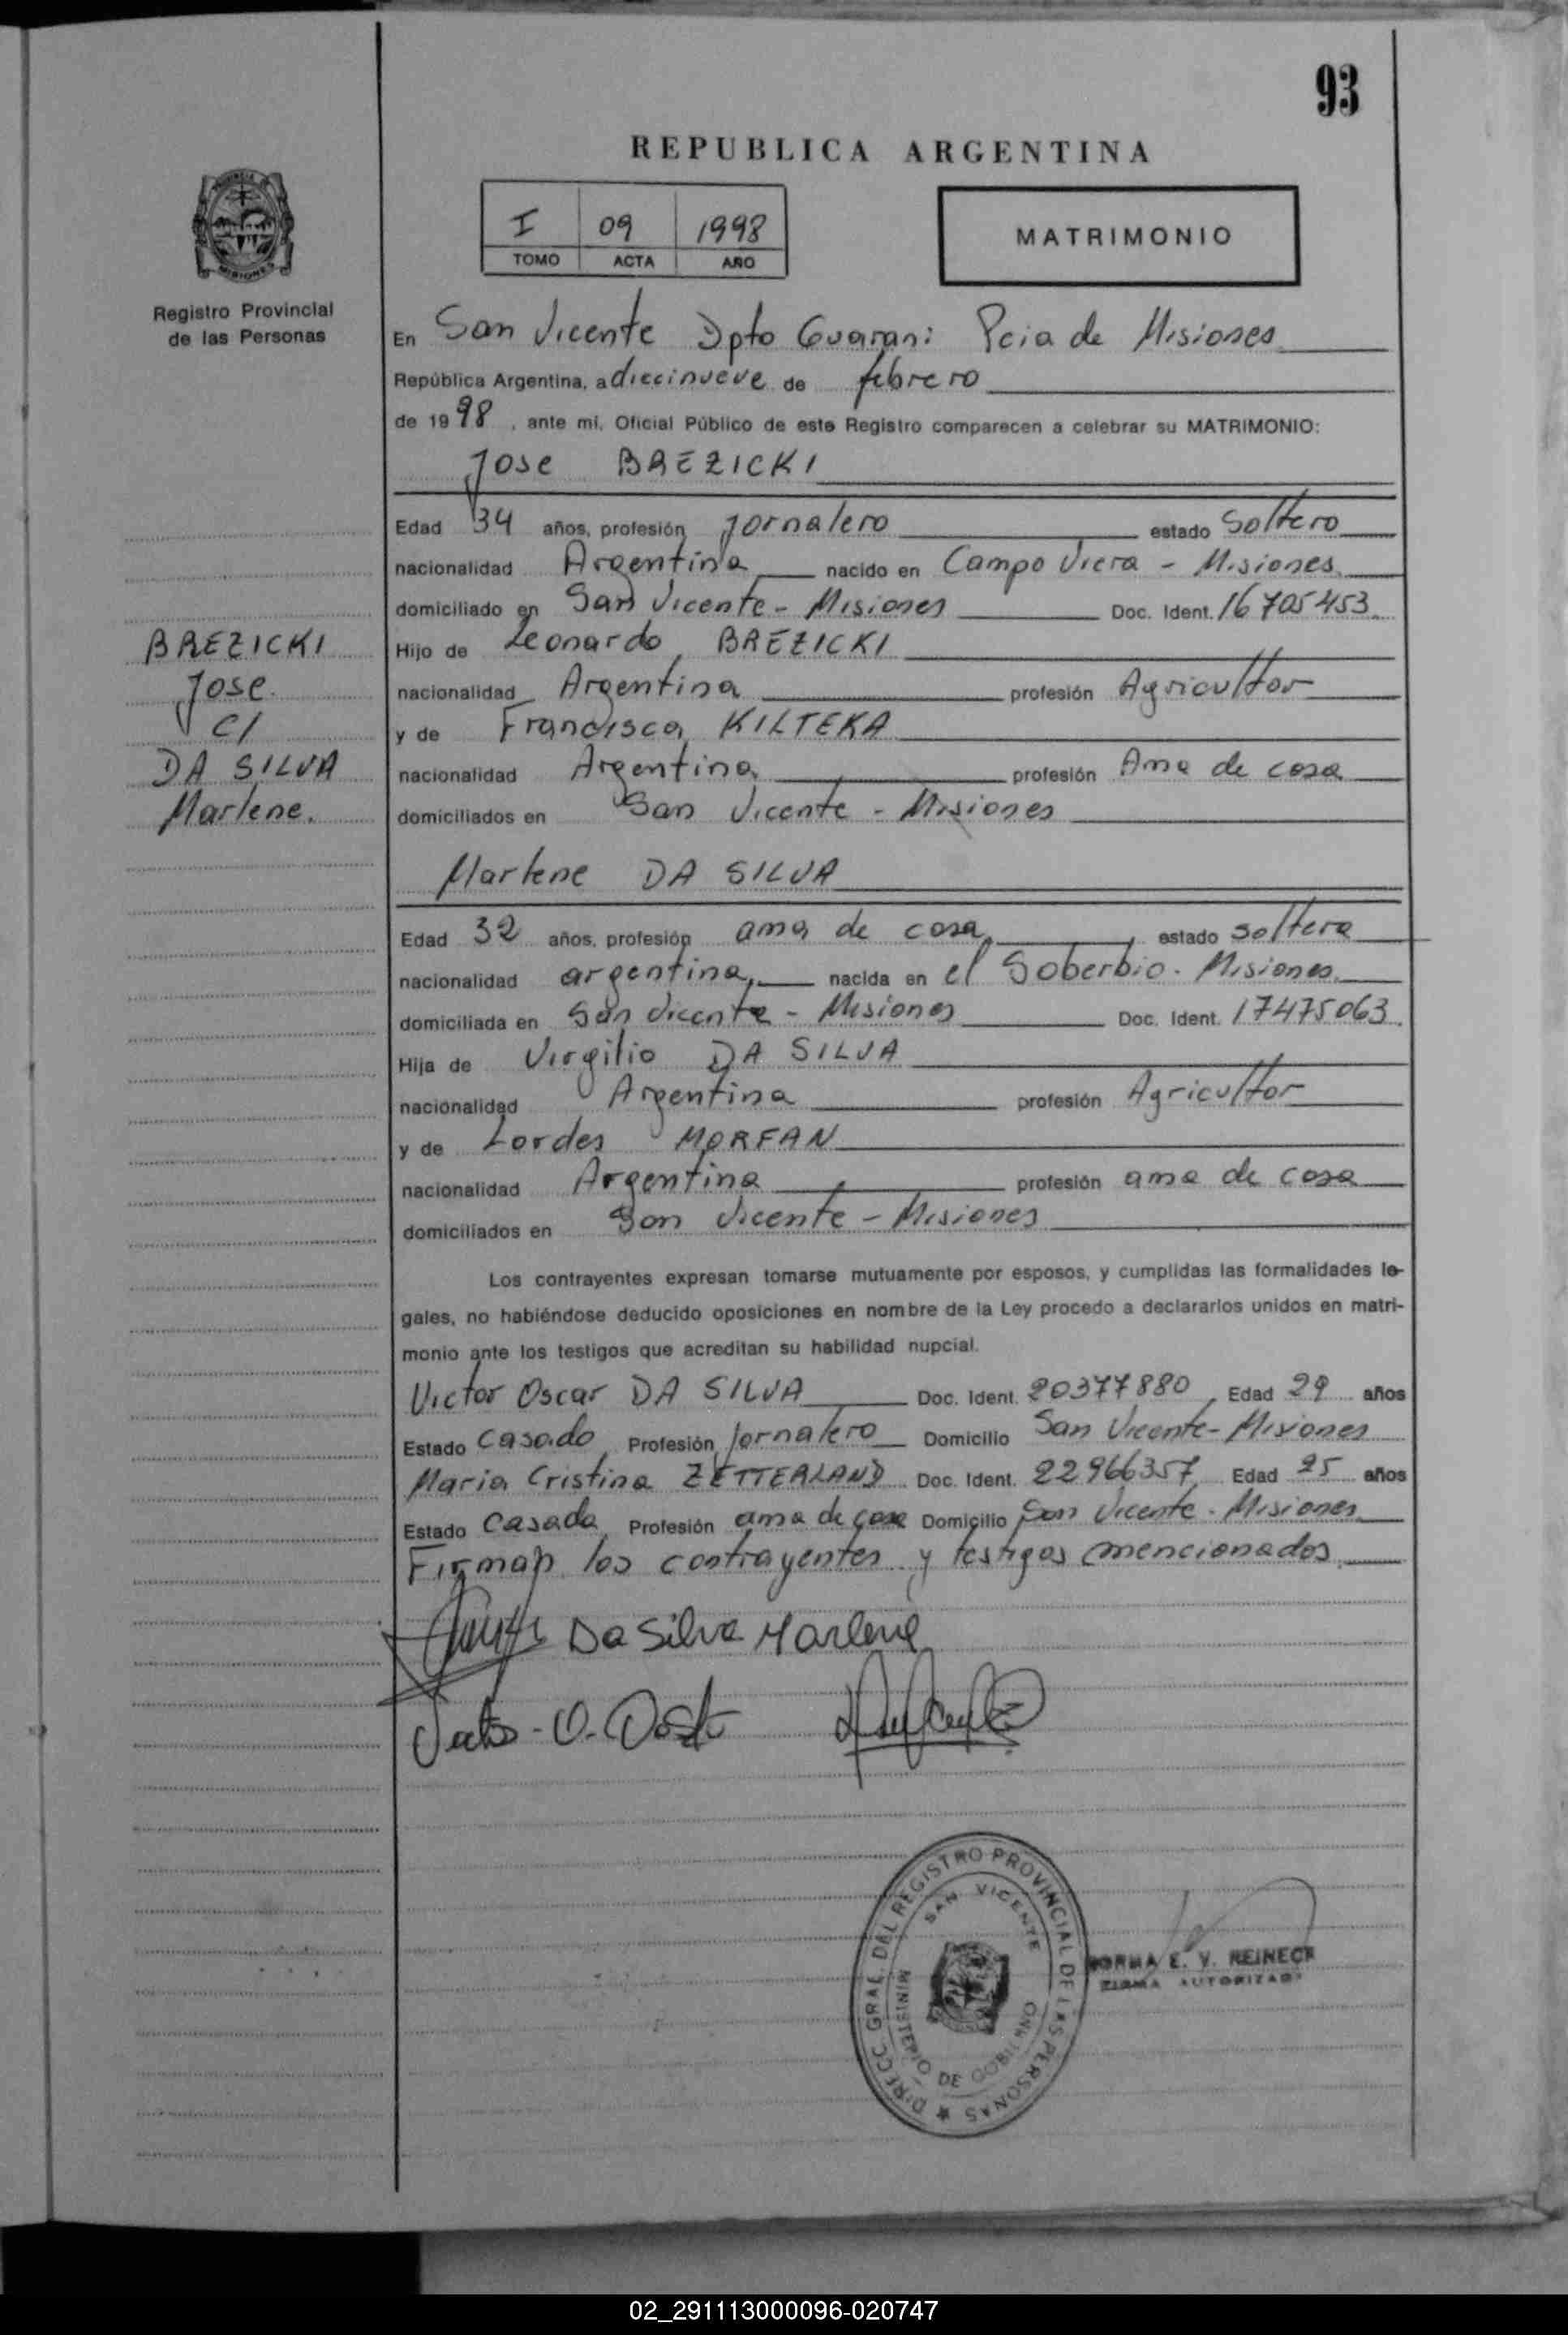 93
REPUBLICA ARGENTINA
I 09 1998
TOMO ACTA AÑO
MATRIMONIO
MISIONES
Registro Provincial
de las Personas
En San Vicente Dpto Guarani Pcia de Misiones
República Argentina, a diecinueve de febrero
de 1998, ante mi, Oficial Público de este Registro comparecen a celebrar su MATRIMONIO:
Jose BREZICKI
Edad 34 años, profesión jornalero estado Soltero
nacionalidad Argentina nacido en Campo Viera - Misiones
domiciliado en San Vicente - Misiones Doc. Ident. 16705453
Hijo de Leonardo BREZICKI
nacionalidad Argentina profesión Agricultor
y de Francisca KILTEKA
nacionalidad Argentina profesión Ama de casa
domiciliados en San Vicente - Misiones
BREZICKI
Jose
C/
DA SILVA
Marlene.
Marlene DA SILVA
Edad 32 años, profesión ama de casa estado soltera
nacionalidad argentina nacida en el Soberbio - Misiones
domiciliada en San Vicente - Misiones Doc. Ident. 17475063
Hija de Virgilio DA SILVA
nacionalidad Argentina profesión Agricultor
y de Lordes MORFAN
nacionalidad Argentina profesión ama de casa
domiciliados en San Vicente - Misiones
Los contrayentes expresan tomarse mutuamente por esposos, y cumplidas las formalidades le-
gales, no habiéndose deducido oposiciones en nombre de la Ley procedo a declararlos unidos en matri-
monio ante los testigos que acreditan su habilidad nupcial.
Victor Oscar DA SILVA Doc. Ident. 20377880 Edad 29 años
Estado Casado Profesión Jornalero Domicilio San Vicente - Misiones
Maria Cristina ZETTERLAND Doc. Ident. 22966357 Edad 25 años
Estado Casada Profesión ama de casa Domicilio San Vicente - Misiones
Firman los contrayentes y testigos mencionados
Da Silva Marlene
DIRECC. GRAL. DEL REGISTRO PROVINCIAL DE LAS PERSONAS
SAN VICENTE
MINISTERIO DE GOBIERNO
NORMA E. V. REINECK
FIRMA AUTORIZADA
02_291113000096-020747